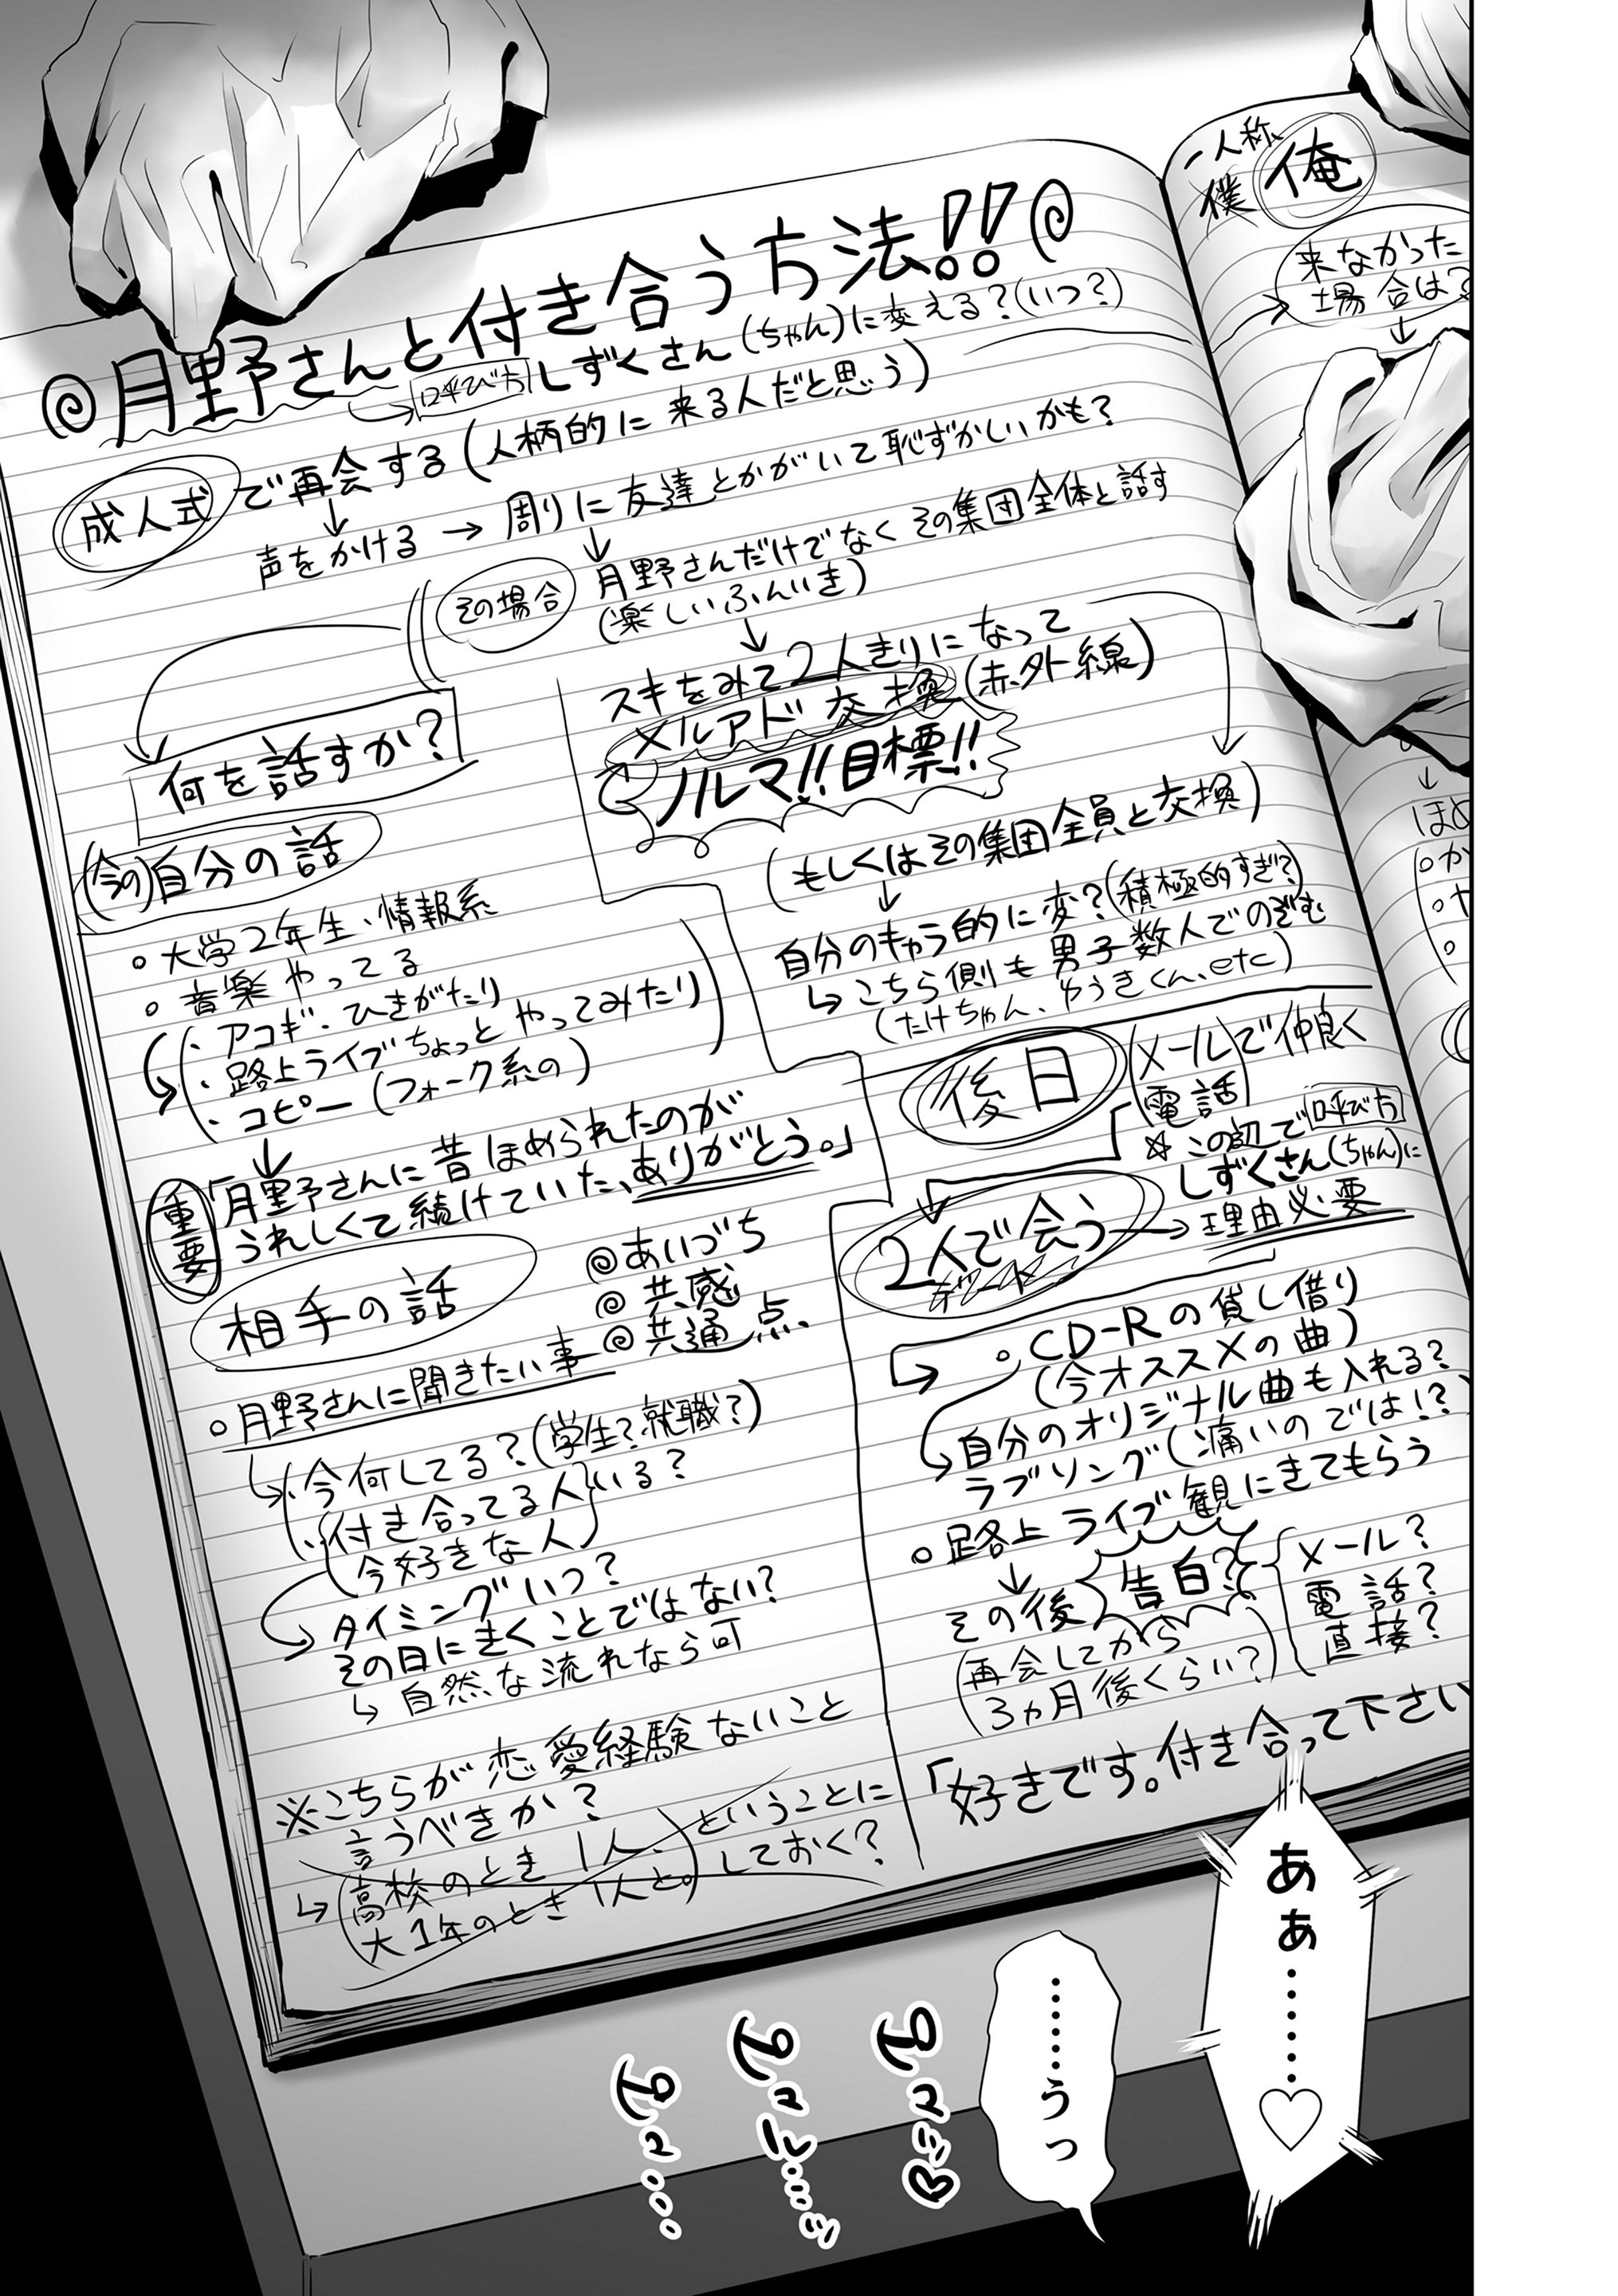 一人称
僕 俺
来なかった
場合は?
◎月野さんと付き合う方法!!◎
呼び方 しずくさん(ちゃん)に変える?(いつ?)
成人式で再会する(人柄的に来る人だと思う)
声をかける→周りに友達とかがいて恥ずかしいかも?
その場合 月野さんだけでなくその集団全体と話す
(楽しいふんいき)
スキをみて2人きりになって
メルアド交換(赤外線)
ノルマ!!目標!!
(もしくはその集団全員と交換)
自分のキャラ的に変?(積極的すぎ?)
こちら側も男子数人でのぞむ
(たけちゃん、ゆうきくん、etc)
何を話すか?
(今の)自分の話
○大学2年生・情報系
○音楽やってる
・アコギ・ひきがたり
・路上ライブちょっとやってみたり
・コピー(フォーク系の)
重要 「月野さんに昔ほめられたのが
うれしくて続けていた、ありがとう。」
相手の話
◎あいづち
◎共感
◎共通点
○月野さんに聞きたい事
・今何してる?(学生?就職?)
・付き合ってる人いる?
今好きな人
タイミングいつ?
その日にきくことではない?
自然な流れなら可
※こちらが恋愛経験ないこと
言うべきか?
高校のとき1人、ということに
大1年のとき1人と。しておく?
後日 メールで仲良く
電話
☆この辺で呼び方
しずくさん(ちゃん)に
2人で会う→理由必要
デート
○CD-Rの貸し借り
(今オススメの曲)
自分のオリジナル曲も入れる?
ラブソング(痛いのでは!?)
○路上ライブ観にきてもらう
その後 告白?
(再会してから
3ヵ月後くらい?)
メール?
電話?
直接?
「好きです。付き合って下さい
ほめ
○か
あぁ………♡
……うっ